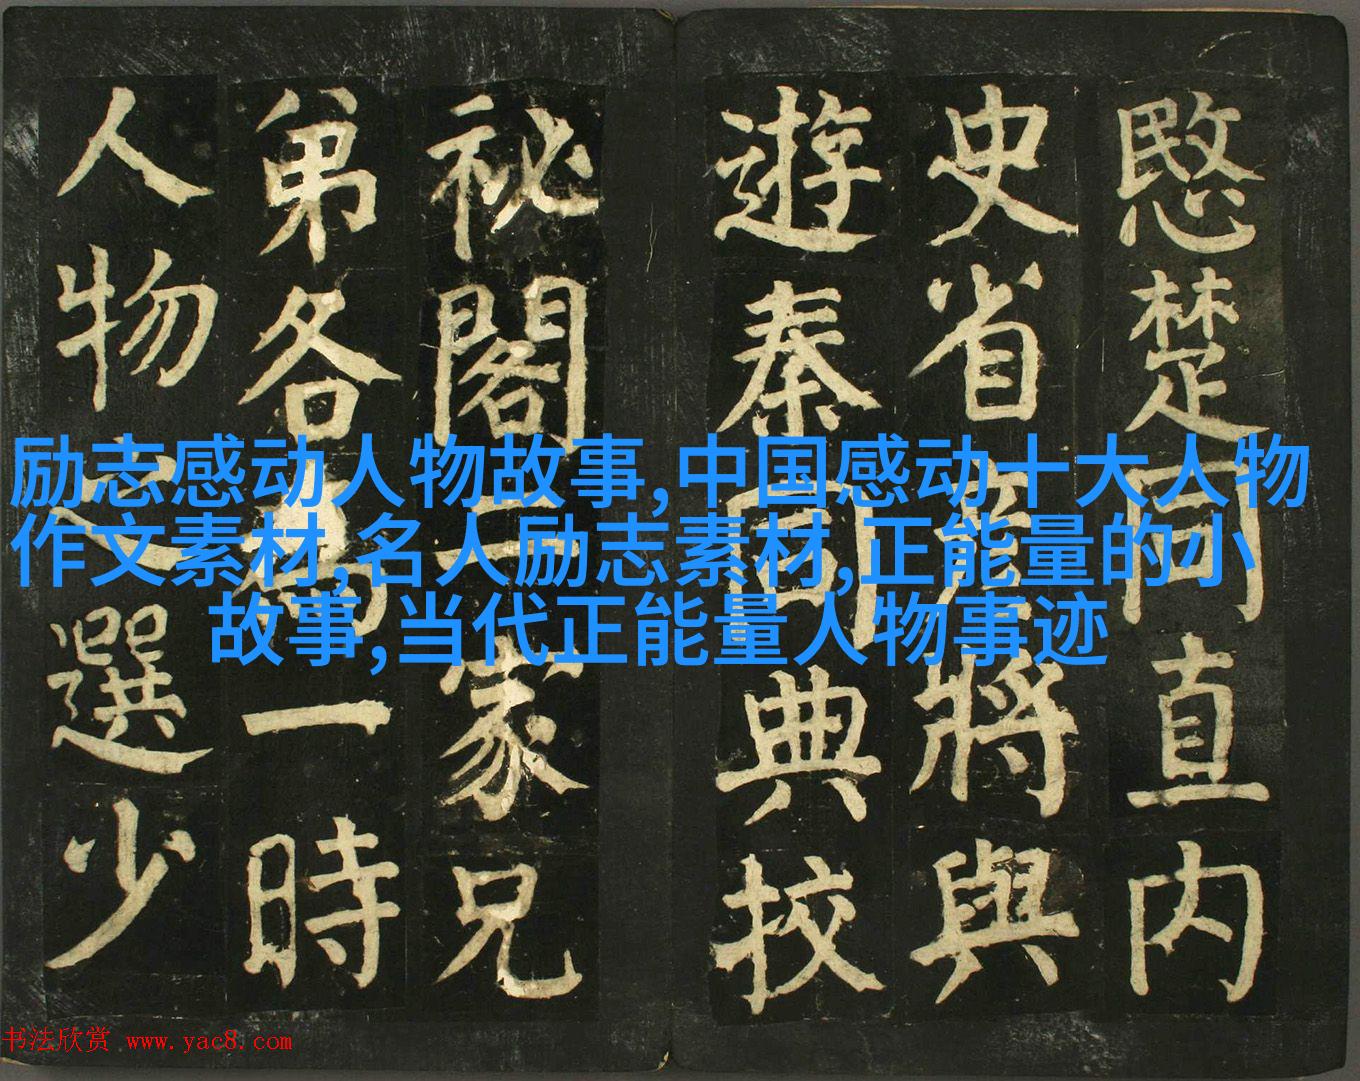 愍楚同直内
史省將與
遊秦同典校
祕閣二家兄
弟各為一時
人物之選少
励志感动人物故事,中国感动十大人物
作文素材,名人励志素材,正能量的小
故事,当代正能量人物事迹
书法欣赏 www.yac8.com